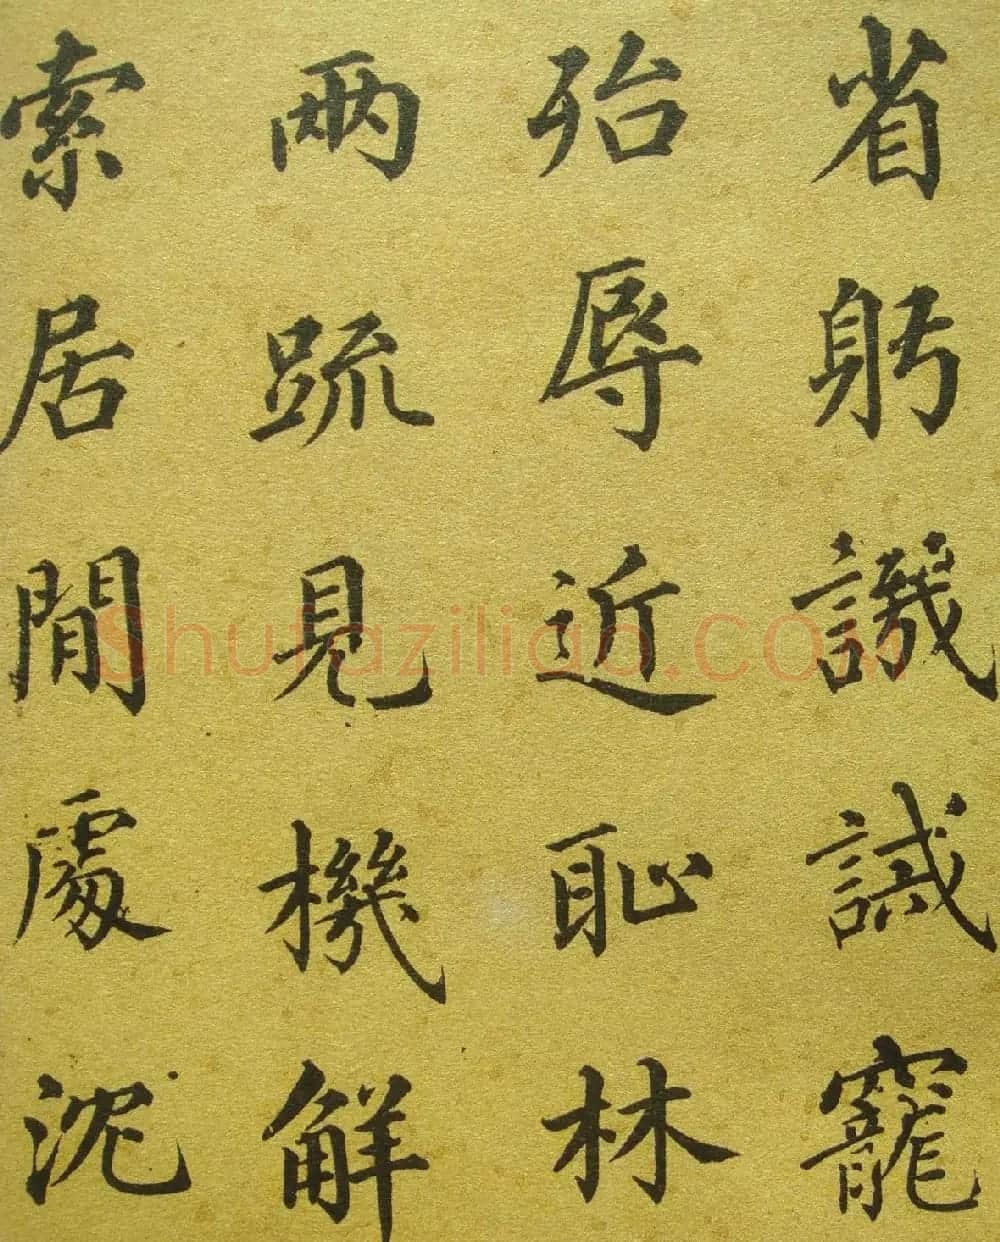 省躬譏誡寵
殆辱近恥林
兩疏見機解
索居閒處沈
Shufaziliao.com